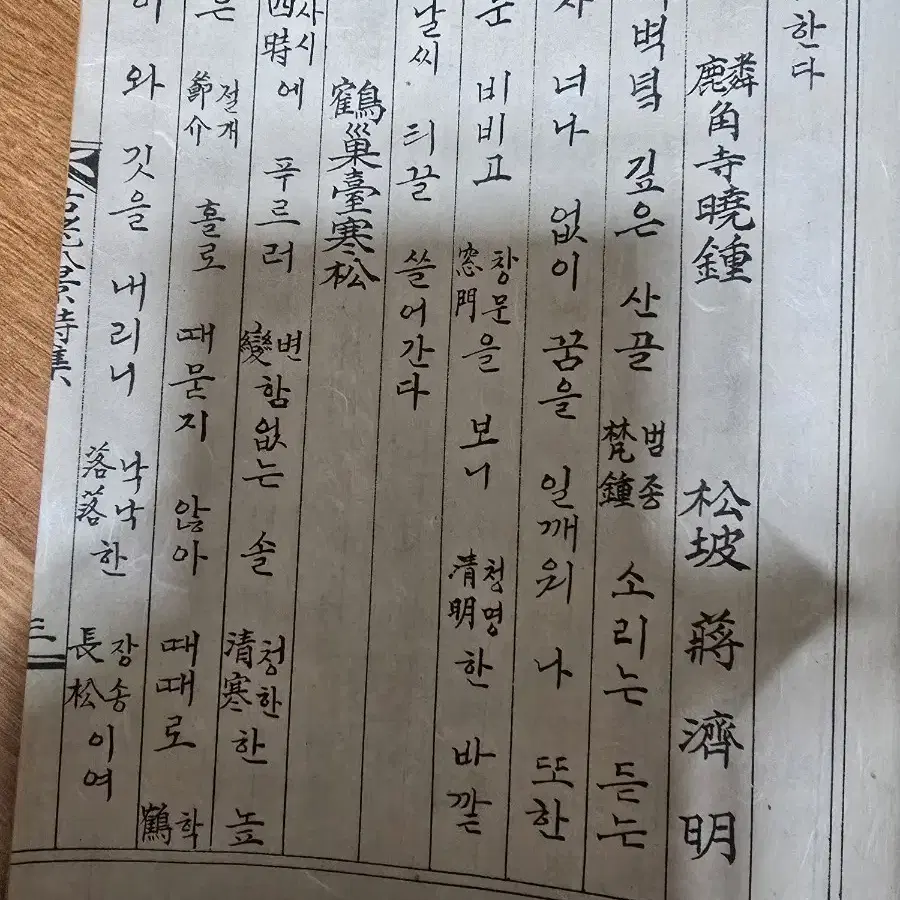 한다
麟角寺曉鍾 松坡 蔣濟明
벽턱 깊은 산골 梵鍾범종 소리는 듣는
너나 없이 꿈을 일깨워나 또한
비비고 窓門창문을 보니 清明청명한 바깥
날씨 티끌 쓸어간다
鶴巢臺寒松
四時사시에 푸르러 變변함없는 솔 清寒청한한 높
은 節介절개 홀로 때묻지 않아 때때로 鶴학
이 와 깃을 내리니 落落낙낙한 長松장송이여
古老八景詩集 三